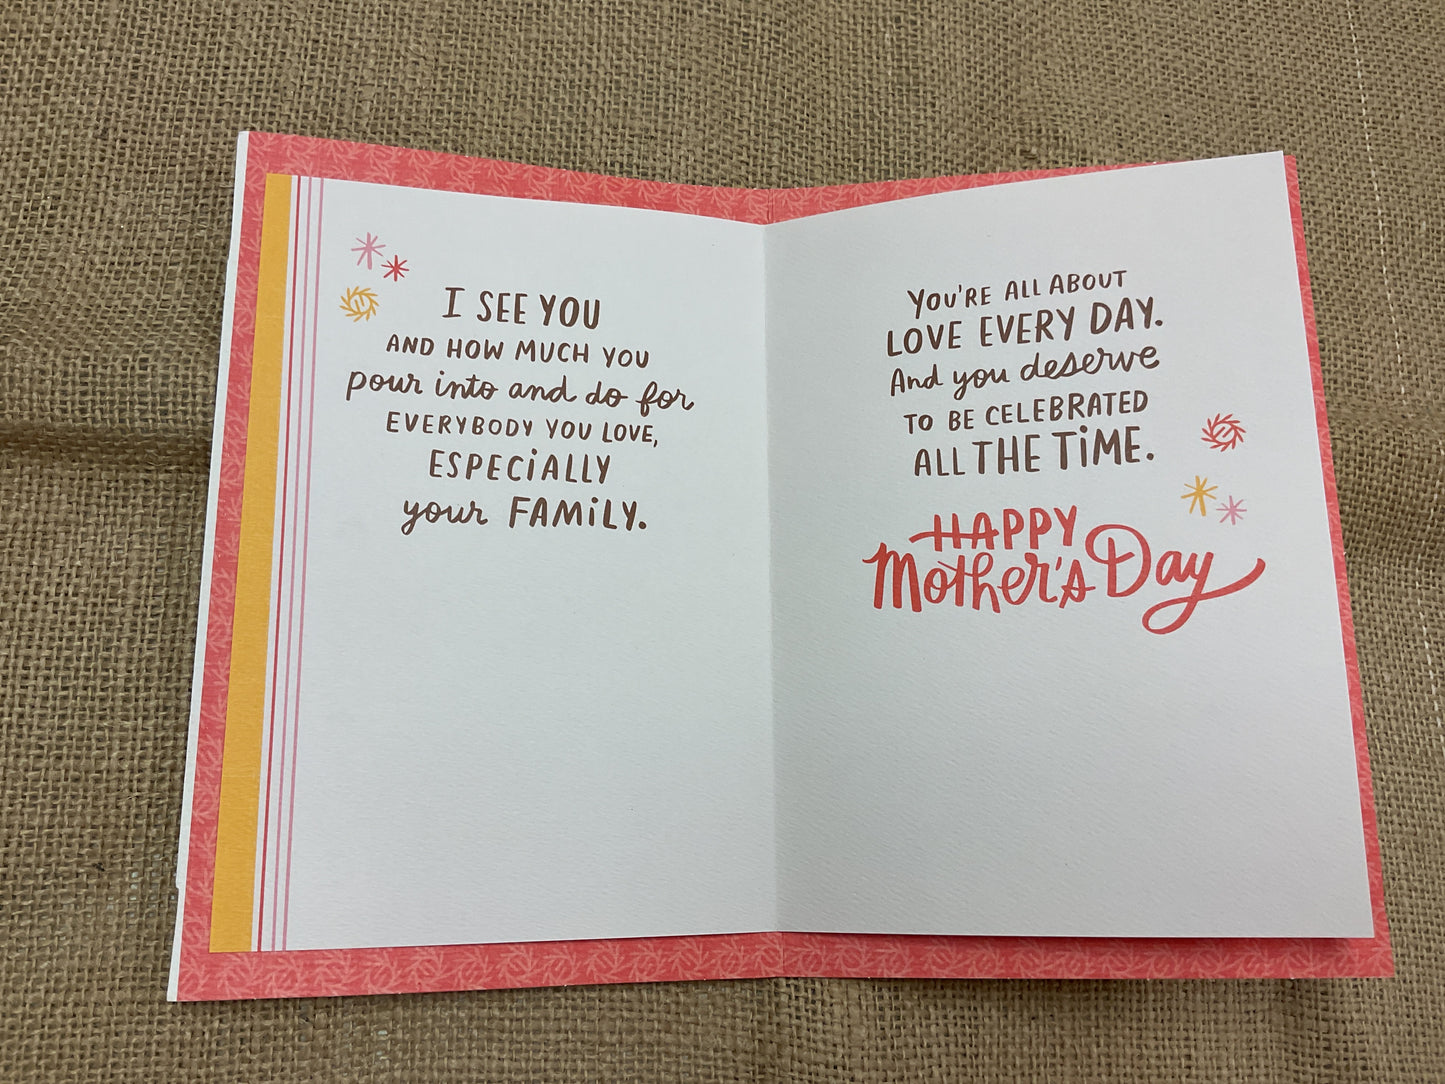 I SEE YOU
AND HOW MUCH YOU
pour into and do for
EVERYBODY YOU LOVE,
ESPECiALLY
your FAMiLY.
YOU'RE ALL ABOUT
LOVE EVERY DAY.
And you deserve
TO BE CELEBRATED
ALL THE TiME.
HAPPY
Mother's Day